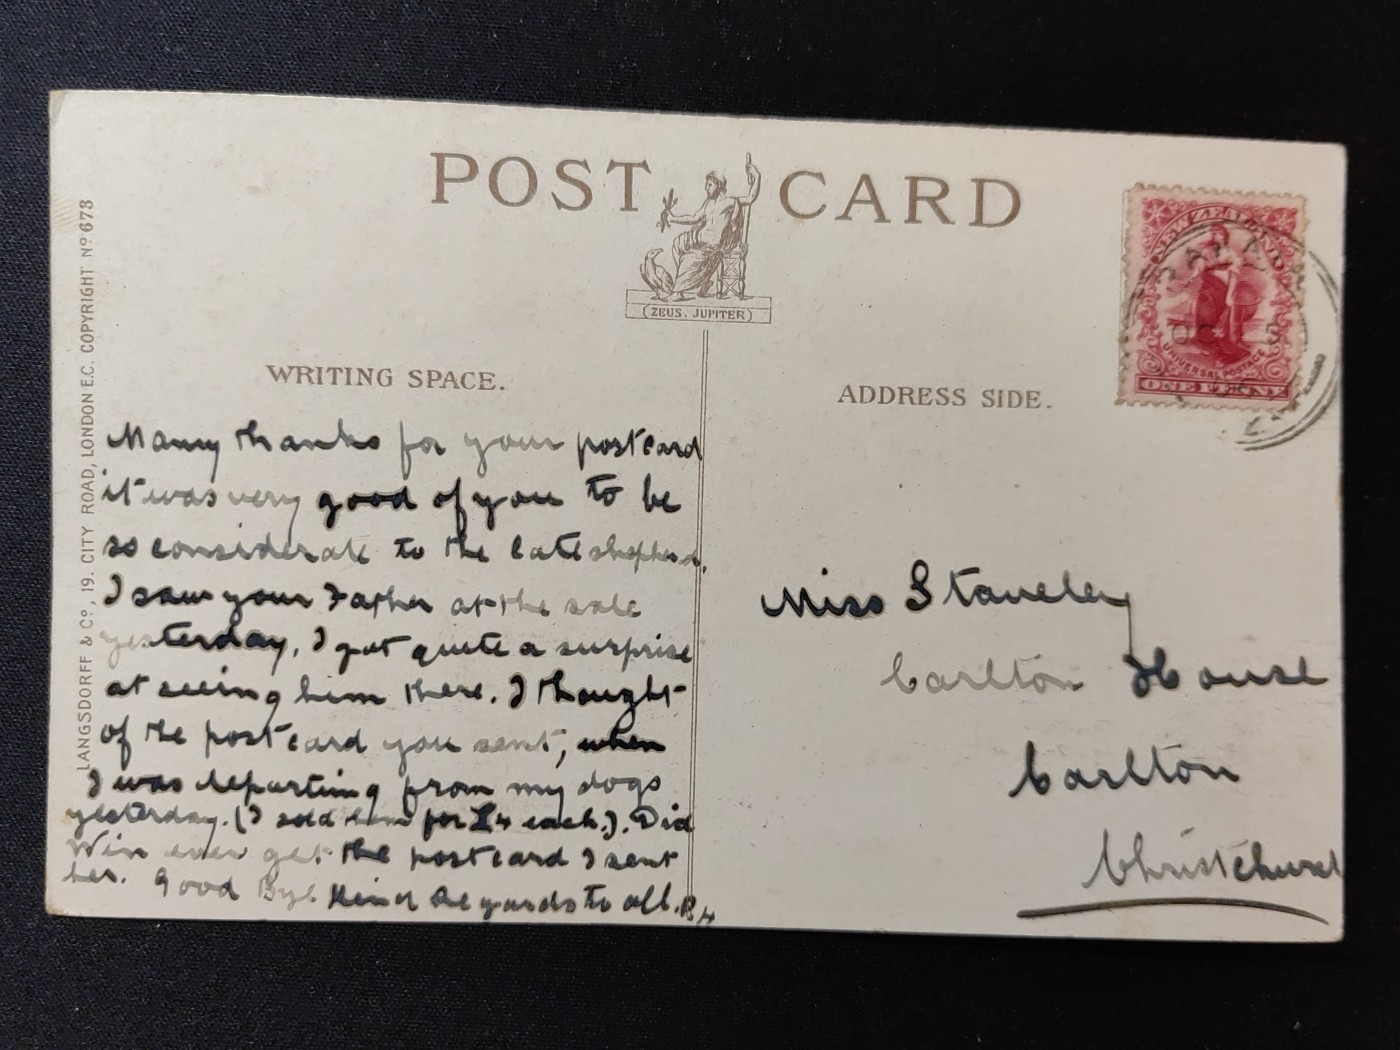 POST CARD
(ZEUS. JUPITER)
WRITING SPACE.
ADDRESS SIDE.
LANGSDORFF & Co, 19. CITY ROAD, LONDON E.C. COPYRIGHT No 678
NEW ZEALAND
UNIVERSAL POSTAGE
ONE PENNY
Many thanks for your postcard
it was very good of you to be
so considerate to the late shepherd.
I saw your Father at the sale
yesterday, I got quite a surprise
at seeing him there. I thought
of the postcard you sent, when
I was departing from my dogs
yesterday. (I sold them for £4 each.). Did
Win ever get the postcard I sent
her. Good Bye Kind Regards to all.
Miss Staveley
Carlton House
Carlton
Christchurch